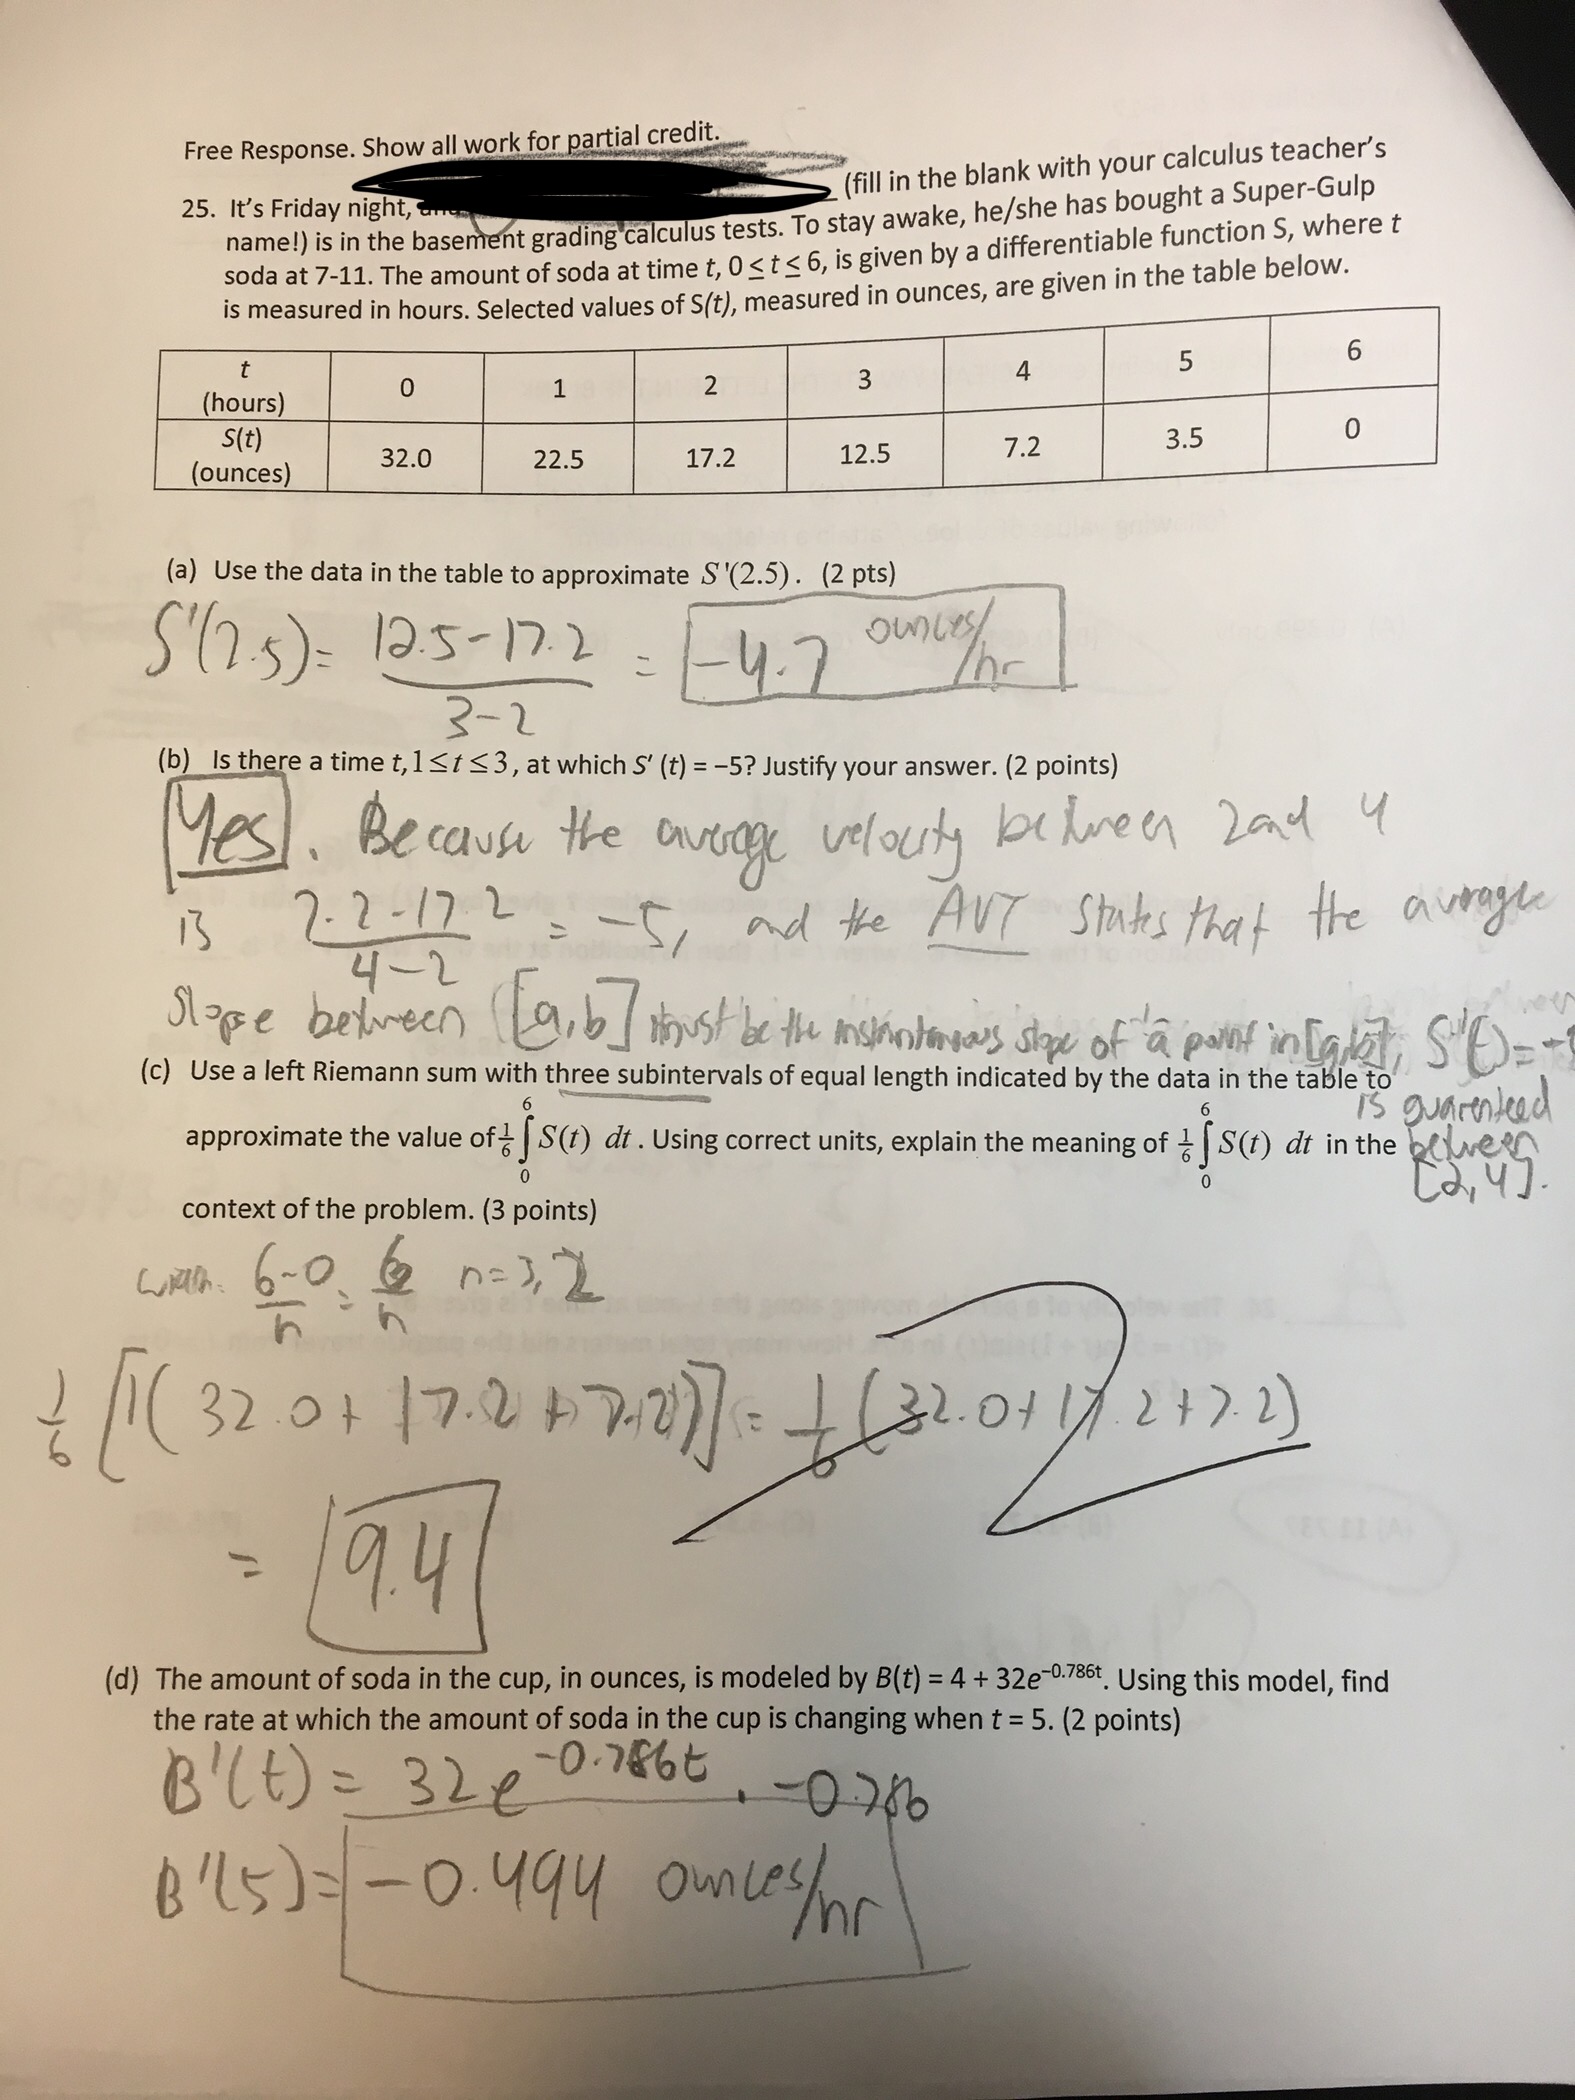 Free Response. Show all work for partial credit.
25. It's Friday night, (fill in the blank with your calculus teacher's
name!) is in the basement grading calculus tests. To stay awake, he/she has bought a Super-Gulp
soda at 7-11. The amount of soda at time t, 0 ≤ t ≤ 6, is given by a differentiable function S, where t
is measured in hours. Selected values of S(t), measured in ounces, are given in the table below.
t (hours) 0 1 2 3 4 5 6
S(t) (ounces) 32.0 22.5 17.2 12.5 7.2 3.5 0
(a) Use the data in the table to approximate S'(2.5). (2 pts)
S'(2.5) = (12.5-17.2)/(3-2) = -4.7 ounces/hr
(b) Is there a time t, 1 ≤ t ≤ 3, at which S' (t) = −5? Justify your answer. (2 points)
Yes. Because the average velocity between 2 and 4
is (7.2-17.2)/(4-2) = -5, and the AVT states that the average
slope between [a,b] must be the instantaneous slope of a point in [a,b], S'(t) =
is guarenteed
between
[2,4].
(c) Use a left Riemann sum with three subintervals of equal length indicated by the data in the table to
approximate the value of 1/6 ∫₀⁶ S(t) dt. Using correct units, explain the meaning of 1/6 ∫₀⁶ S(t) dt in the
context of the problem. (3 points)
(6-0)/n = 6/n n=3, 2
1/6 [1(32.0 + 17.2 + 7.2)] = 1/6 (32.0 + 17.2 + 7.2)
= 9.4
(d) The amount of soda in the cup, in ounces, is modeled by B(t) = 4 + 32e^(−0.786t). Using this model, find
the rate at which the amount of soda in the cup is changing when t = 5. (2 points)
B'(t) = 32e^(-0.786t) · -0.786
B'(5) = -0.494 ounces/hr